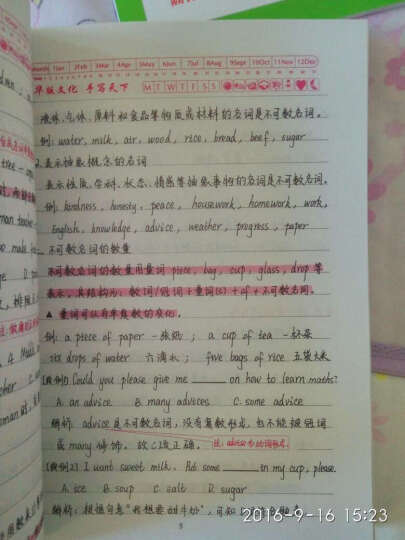 Month 1Jan 2Feb 3Mar 4Apr 5May 6Jun 7Jul 8Aug 9Sept 10Oct 11Nov 12Dec
华版文化 手写天下 M T W T F S S
液体、气体、原料和食品等物质或材料的名词是不可数名词。
例: water, milk, air, wood, rice, bread, beef, sugar
2.表示抽象概念的名词
表示性质、学科、状态、情感等抽象事物的名词是不可数名词。
例: kindness, honesty, peace, housework, homework, work,
English, knowledge, advice, weather, progress, paper
不可数名词的数量
不可数名词的数量用量词 piece, bag, cup, glass, drop 等
表示,其结构为: 数词/冠词+量词(s)+of+不可数名词。
▲ 量词可以有单复数的变化。
例: a piece of paper 一张纸; a cup of tea 一杯茶
six drops of water 六滴水; five bags of rice 五袋大米
[典例1] Could you please give me ____ on how to learn maths?
A. an advice B. many advices C. some advice
解析: advice是不可数名词,没有复数形式,也不能被冠词
或many修饰。故C项正确。 注: advise为动词形式。
[典例2] I want sweet milk. Add some ____ in my cup, please.
A. ice B. soup C. salt D. sugar
解析: 根据句意"我想要甜牛奶",可知
5
2016-9-16 15:23